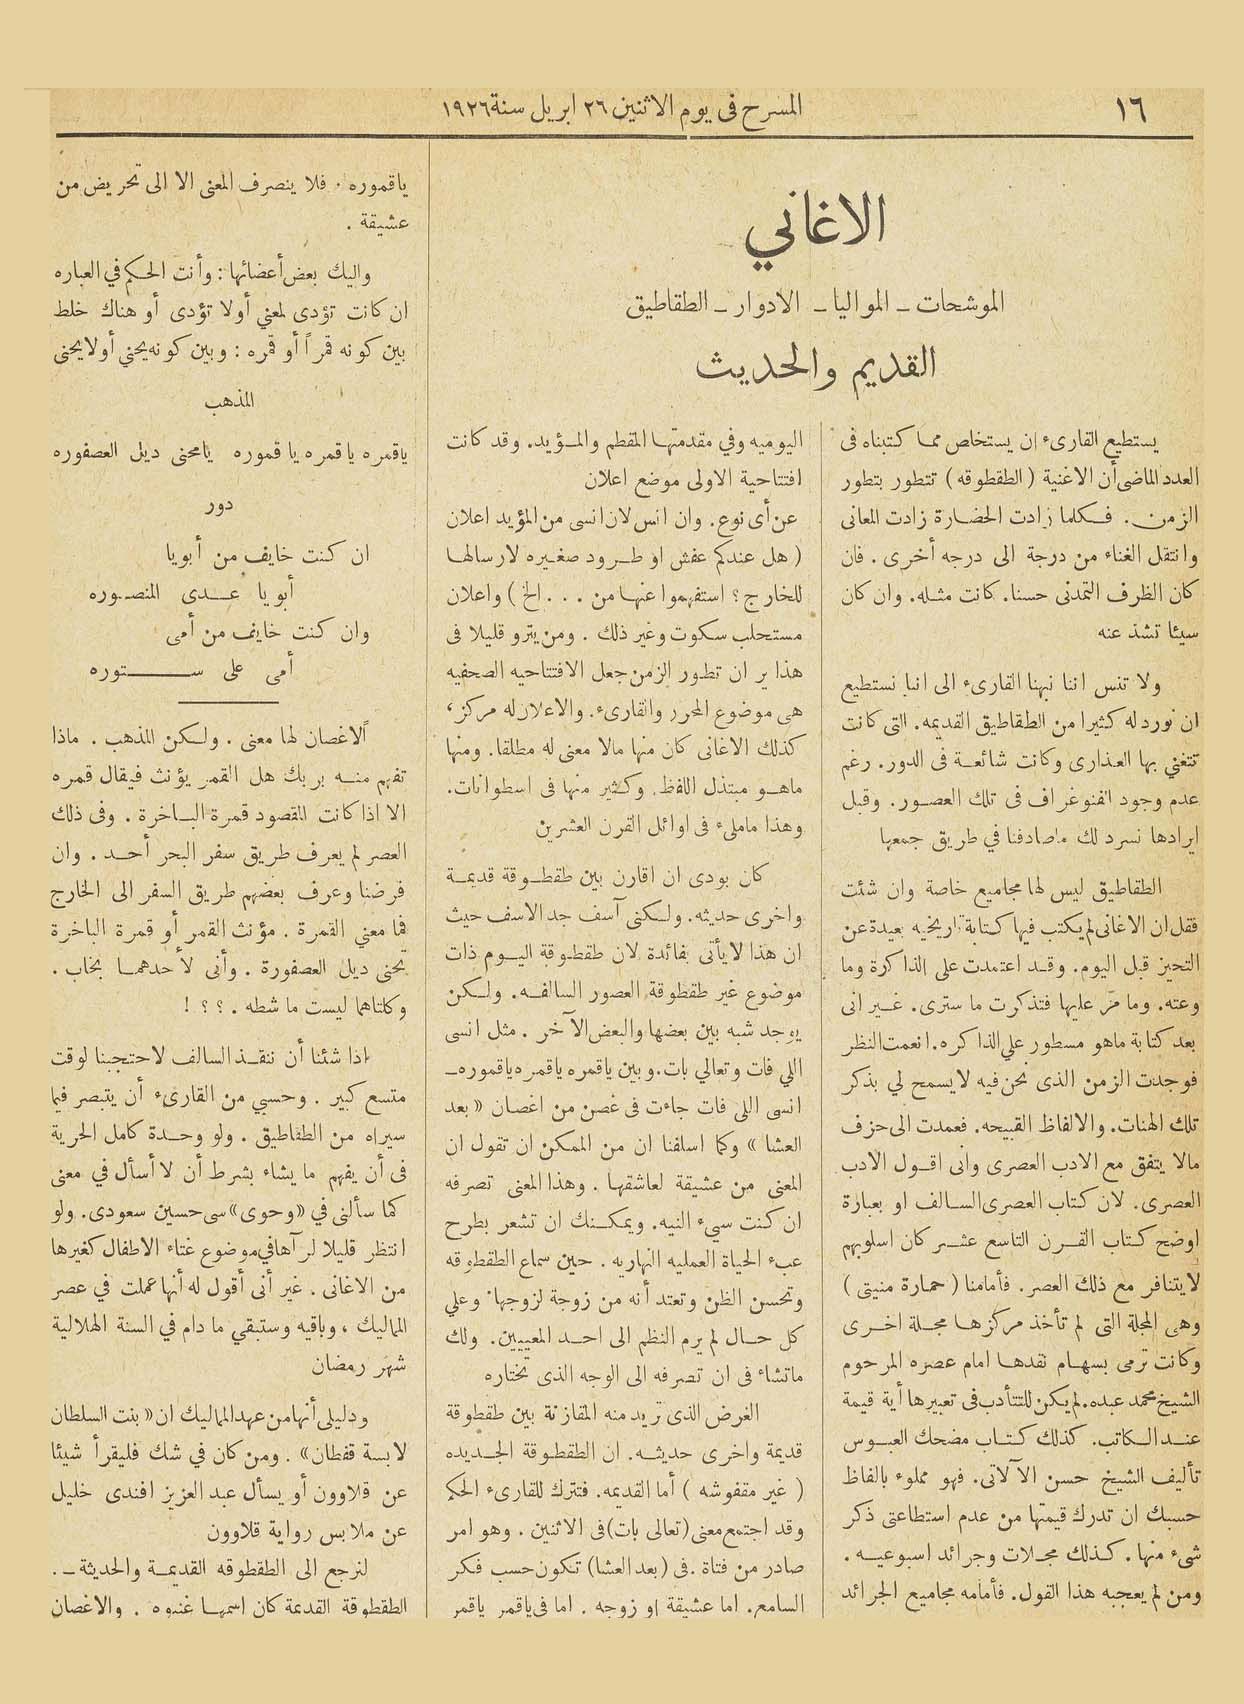 ١٦
المسرح فى يوم الاثنين ٢٦ ابريل سنة ١٩٢٦
الاغاني
الموشحات ـ المواليا ـ الادوار ـ الطقاطيق
القديم والحديث
يستطيع القارىء إن يستخلص مما كتبناه فى
العدد الماضى أن الاغنية ( الطقطوقه ) تتطور بتطور
الزمن . فكلما زادت الحضارة زادت المعانى
وانتقل الغناء من درجة الى درجه أخرى . فان
كان الظرف التمدنى حسنا . كانت مثله . وان كان
سيئا تشذ عنه
ولا تنس اننا نبهنا القارىء الى اننا نستطيع
ان نورد له كثيرا من الطقاطيق القديمه . التى كانت
تتغني بها العذارى وكانت شائعة فى الدور . رغم
عدم وجود الفنوغراف فى تلك العصور . وقبل
ايرادها نسرد لك ماصادفنا في طريق جمعها
الطقاطيق ليس لها مجاميع خاصة وان شئت
فقل ان الاغانى لم يكتب فيها كتابة تاريخيه بعيدة عن
التحيز قبل اليوم . وقد اعتمدت على الذاكرة وما
وعته . وما مرّ عليها فتذكرت ما سترى . غير انى
بعد كتابة ماهو مسطور علي الذاكره . انعمت النظر
فوجدت الزمن الذى نحن فيه لا يسمح لي بذكر
تلك الهنات . والالفاظ القبيحه . فعمدت الى حزف
مالا يتفق مع الادب العصرى وانى اقول الادب
العصرى . لان كتاب العصرى السالف او بعبارة
اوضح كتاب القرن التاسع عشر كان اسلوبهم
لا يتنافر مع ذلك العصر . فأمامنا ( حمارة منيتى )
وهى المجلة التى لم تأخذ مركزها مجلة اخرى
وكانت ترمى بسهام نقدها امام عصره المرحوم
الشيخ محمد عبده . لم يكن للتأدب فى تعبيرها أية قيمة
عند الكاتب . كذلك كتاب مضحك العبوس
تأليف الشيخ حسن الآلاتى . فهو مملوء بالفاظ
حسبك ان تدرك قيمتها من عدم استطاعتى ذكر
شىء منها . كذلك مجلات وجرائد اسبوعيه .
ومن لم يعجبه هذا القول . فأمامه مجاميع الجرائد
اليوميه وفي مقدمتها المقطم والمؤيد . وقد كانت
افتتاحية الاولى موضع اعلان
عن أى نوع . وان انس لان انسى من المؤيد اعلان
( هل عندكم عفش او طرود صغيره لارسالها
للخارج ؟ استفهموا عنها من . . . الخ ) واعلان
مستحلب سكوت وغير ذلك . ومن يترو قليلا فى
هذا ير ان تطور الزمن جعل الافتتاحيه الصحفيه
هى موضوع المحرر والقارىء . والاعلان له مركز ،
كذلك الاغانى كان منها مالا معنى له مطلقا . ومنها
ماهو مبتذل اللفظ . وكثير منها فى اسطوانات .
وهذا ماملىء فى اوائل القرن العشرين
كان بودى ان اقارن بين طقطوقة قديمة
واخرى حديثه . ولكنى آسف جد الاسف حيث
ان هذا لا يأتى بفائدة لان طقطوقة اليوم ذات
موضوع غير طقطوقة العصور السالفه . ولكن
يوجد شبه بين بعضها والبعض الآخر . مثل انسى
اللي فات وتعالي بات . وبين ياقمره ياقمره ياقموره ـ
انسى اللى فات جاءت فى غصن من اغصان « بعد
العشا » وكما اسلفنا ان من الممكن ان تقول ان
المعنى من عشيقة لعاشقها . وهذا المعنى تصرفه
ان كنت سيء النيه . ويمكنك ان تشعر بطرح
عبء الحياة العمليه النهاريه . حين سماع الطقطوقه
وتحسن الظن وتعتد أنه من زوجة لزوجها . وعلي
كل حال لم يرم النظم الى احد المعيبين . ولك
ماتشاء فى ان تصرفه الى الوجه الذى تختاره
الغرض الذى تريد منه المقارنة بين طقطوقة
قديمة واخرى حديثه . ان الطقطوقة الجديده
( غير مقفوشه ) أما القديمه . فنترك للقارىء الحكم
وقد اجتمع معنى (تعالى بات) فى الاثنين . وهو امر
صادر من فتاة . فى (بعد العشا) تكون حسب فكر
السامع . اما عشيقة او زوجه . اما فى ياقمر ياقمر
ياقموره . فلا ينصرف المعنى الا الى تحريض من
عشيقة .
واليك بعض أعضائها : وأنت الحكم في العباره
ان كانت تؤدى لمعني أولا تؤدى أو هناك خلط
بين كونه قمراً أو قمره : وبين كونه يحني أولا يحنى
المذهب
ياقمره ياقمره يا قموره يا محنى ديل العصفوره
دور
ان كنت خايف من أبويا
أبويا عدى المنصوره
وان كنت خايف من أمى
أمى على ستوره
الاغصان لها معنى . ولكن المذهب . ماذا
تفهم منه بربك هل القمر يؤنث فيقال قمره
الا اذا كانت المقصود قمرة الباخرة . وفى ذلك
العصر لم يعرف طريق سفر البحر أحد . وان
فرضنا وعرف بعضهم طريق السفر الى الخارج
فما معني القمرة . مؤنث القمر أو قمرة الباخرة
تحنى ديل العصفورة . وأنى لأحدهما بخاب .
وكلتاهما ليست ماشطه . ؟ ؟ !
اذا شئنا أن ننقد السالف لاحتجبنا لوقت
متسع كبير . وحسبي من القارىء أن يتبصر فيما
سيراه من الطقاطيق . ولو وحدة كامل الحرية
فى أن يفهم ما يشاء بشرط أن لا أسأل في معنى
كما سألنى في «وحوى» سى حسين سعودى . ولو
انتظر قليلا لرآها في موضوع غناء الاطفال كغيرها
من الاغانى . غير أنى أقول له أنها عملت في عصر
المماليك ، وباقيه وستبقي ما دام في السنة الهلالية
شهر رمضان
ودليلى أنها من عهد المماليك ان « بنت السلطان
لابسة قفطان» . ومن كان في شك فليقرأ شيئا
عن قلاوون أو يسأل عبد العزيز افندى خليل
عن ملابس رواية قلاوون
لنرجع الى الطقطوقه القديمة والحديثة ـ .
الطقطوقة القديمة كان اسمها غنيوه . والاغصان